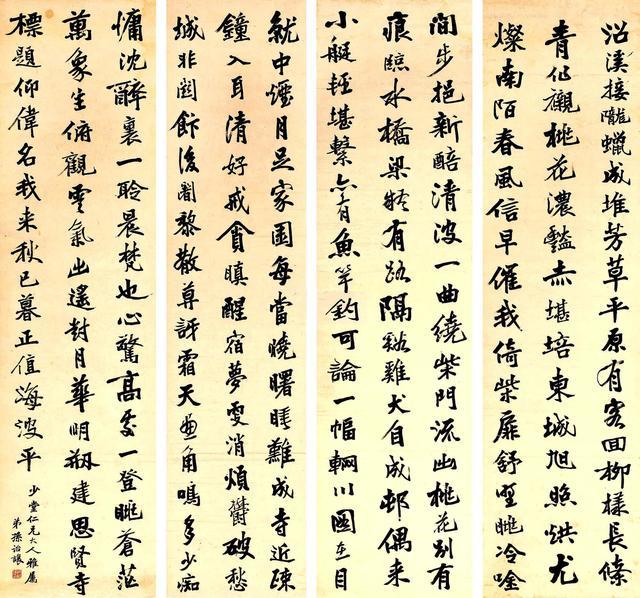 沿溪接隴蠟成堆芳草平原有客回柳樣長條
青似觀桃花濃豔赤堪培東城旭照烘尤
燦南陌春風信早催我倚柴扉舒望眺冷唫
閒步挹新醅清波一曲繞柴門流出桃花別有
痕臨水橋梁雖有路隔谿雞犬自成邨偶来
小艇輕堪繫魚竿釣可論一幅輞川圖在目
就中煙月足家園每當曉曙睡難成寺近疎
鐘入耳清好戒貪瞋醒宿夢更消煩鬱破愁
城非關飰後闍黎散訝霜天畫角鳴多少痴
慵沈醉裏一聆晨梵也心驚高臺一登眺蒼茫
萬象生俯觀雲氣出遙對月華明剏建思賢寺
標題仰偉名我来秋已暮正值海波平
少堂仁兄大人雅屬
弟孫詒讓